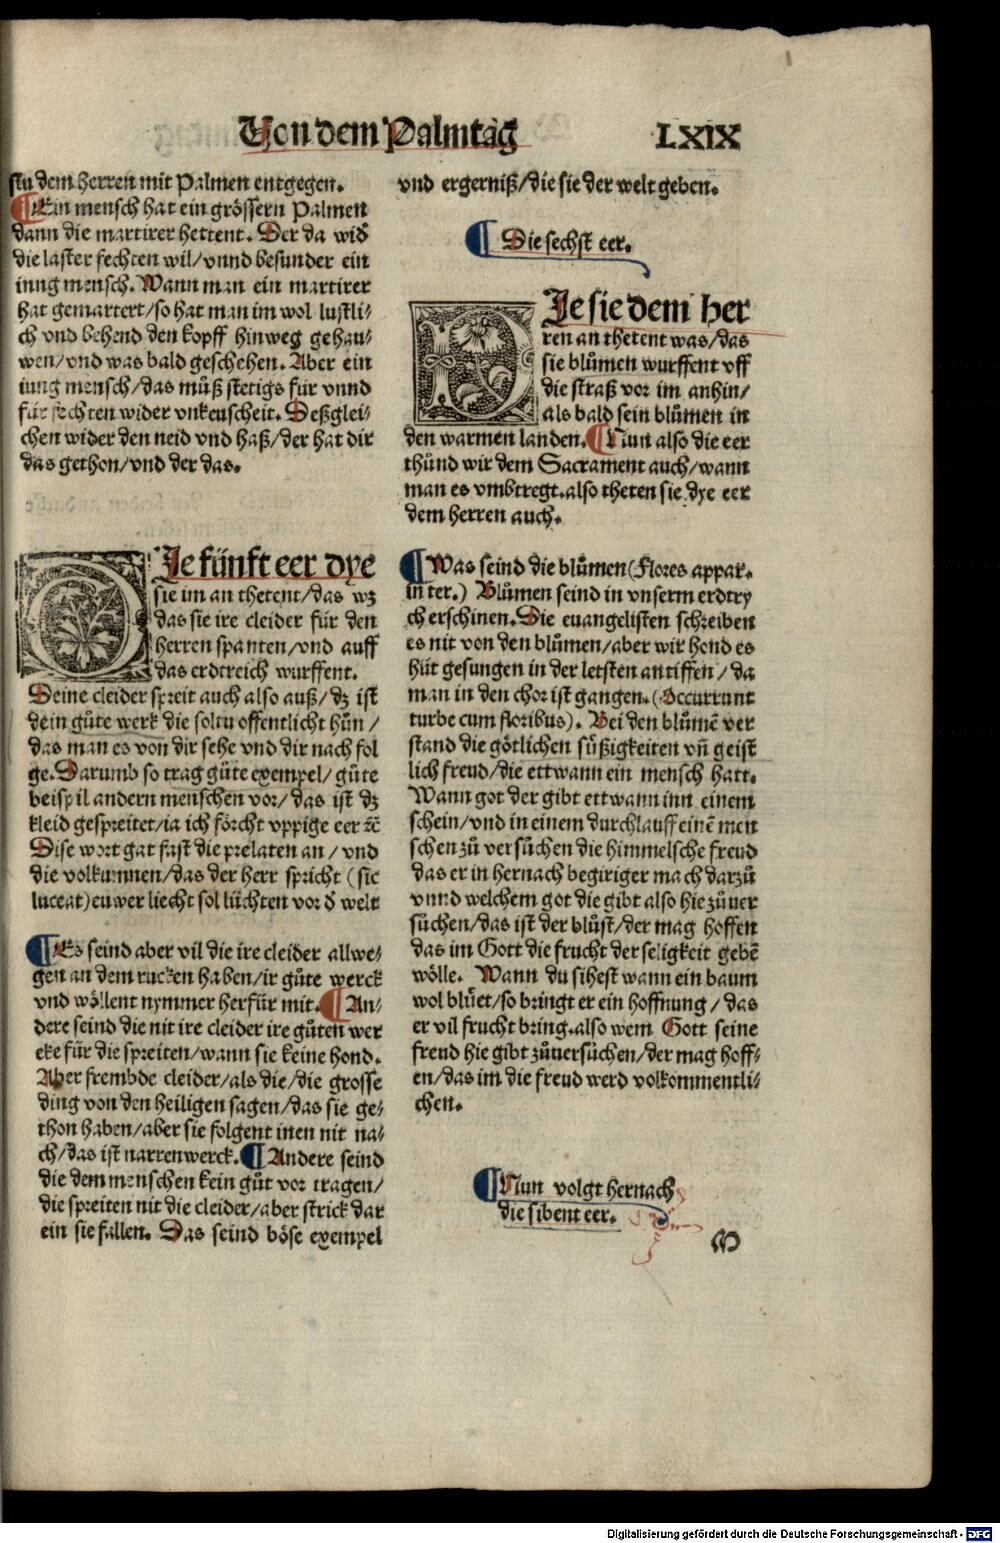 Von dem Palmtag
LXIX
stu dem herren mit Palmen entgegen.
¶ Ein mensch hat ein grössern Palmen
dann die martirer hettent. Der da wid̄
die laster fechten wil/vnnd besunder ein
iung mensch. Wann man ein martirer
hat gemartert/so hat man im wol lustli⸗
ch vnd behend den kopff hinweg gehau⸗
wen/vnd was bald geschehen. Aber ein
iung mensch/das muͦß stetigs für vnnd
für fechten wider vnkeuscheit. Deßglei⸗
chen wider den neid vnd haß/der hat dir
das gethon/vnd der das.
DJe fünft eer dye
sie im an thetent/das wz
das sie ire cleider für den
herren spanten/vnd auff
das erdtreich wurffent.
Deine cleider spreit auch also auß/dz ist
dein guͦte werk die soltu offentlicht huͦn/
das man es von dir sehe vnd dir nach fol
ge. Darumb so trag guͦte exempel/guͦte
beispil andern menschen vor/das ist dz
kleid gespreitet/ia ich förcht vppige eer ⁊c̄
Dise wort gat fast die prelaten an/vnd
die volkumnen/das der herr spricht (sic
luceat) euwer liecht sol lüchten vor d̄ welt
¶ Es seind aber vil die ire cleider allwe⸗
gen an dem rucken haben/ir guͦte werck
vnd wöllent nymmer herfür mit. ¶ An⸗
dere seind die nit ire cleider ire guͦten wer
cke für die spreiten/wann sie keine hond.
Aber frembde cleider/als die/die grosse
ding von den heiligen sagen/das sie ge⸗
thon haben/aber sie folgent inen nit na⸗
ch/das ist narrenwerck. ¶ Andere seind
die dem menschen kein guͦt vor tragen/
die spreiten nit die cleider/aber strick dar
ein sie fallen. Das seind böse exempel
vnd ergerniß/die sie der welt geben.
¶ Die sechst eer.
DJe sie dem her
ren an thetent was/das
sie bluͦmen wurffent vff
die straß vor im anhin/
als bald sein bluͦmen in
den warmen landen. ¶ Nun also die eer
thuͦnd wir dem Sacrament auch/wann
man es vmbtregt. also theten sie dye eer
dem herren auch.
¶ Was seind die bluͦmen (Flores appar.
in ter.) Bluͦmen seind in vnserm erdtry
ch erschinen. Die euangelisten schreiben
es nit von den bluͦmen/aber wir hond es
hüt gesungen in der letsten antiffen/da
man in den chor ist gangen. (Occurrunt
turbe cum floribus). Bei den bluͦmē ver
stand die götlichen süßigkeiten vn̄ geist
lich freud/die ettwann ein mensch hatt.
Wann got der gibt ettwann inn einem
schein/vnd in einem durchlauff einē men
schen zuͦ versuͦchen die himmelsche freud
das er in hernach begiriger mach darzuͦ
vnnd welchem got die gibt also hie zuͦuer
suͦchen/das ist der bluͦst/der mag hoffen
das im Gott die frucht der seligkeit gebē
wölle. Wann du sihest wann ein baum
wol bluͤet/so bringt er ein hoffnung/das
er vil frucht bring. also wem Gott seine
freud hie gibt zuͦuersuͦchen/der mag hoff⸗
en/das im die freud werd volkommentli⸗
chen.
¶ Nun volgt hernach
die sibent eer.
M
Digitalisierung gefördert durch die Deutsche Forschungsgemeinschaft - DFG